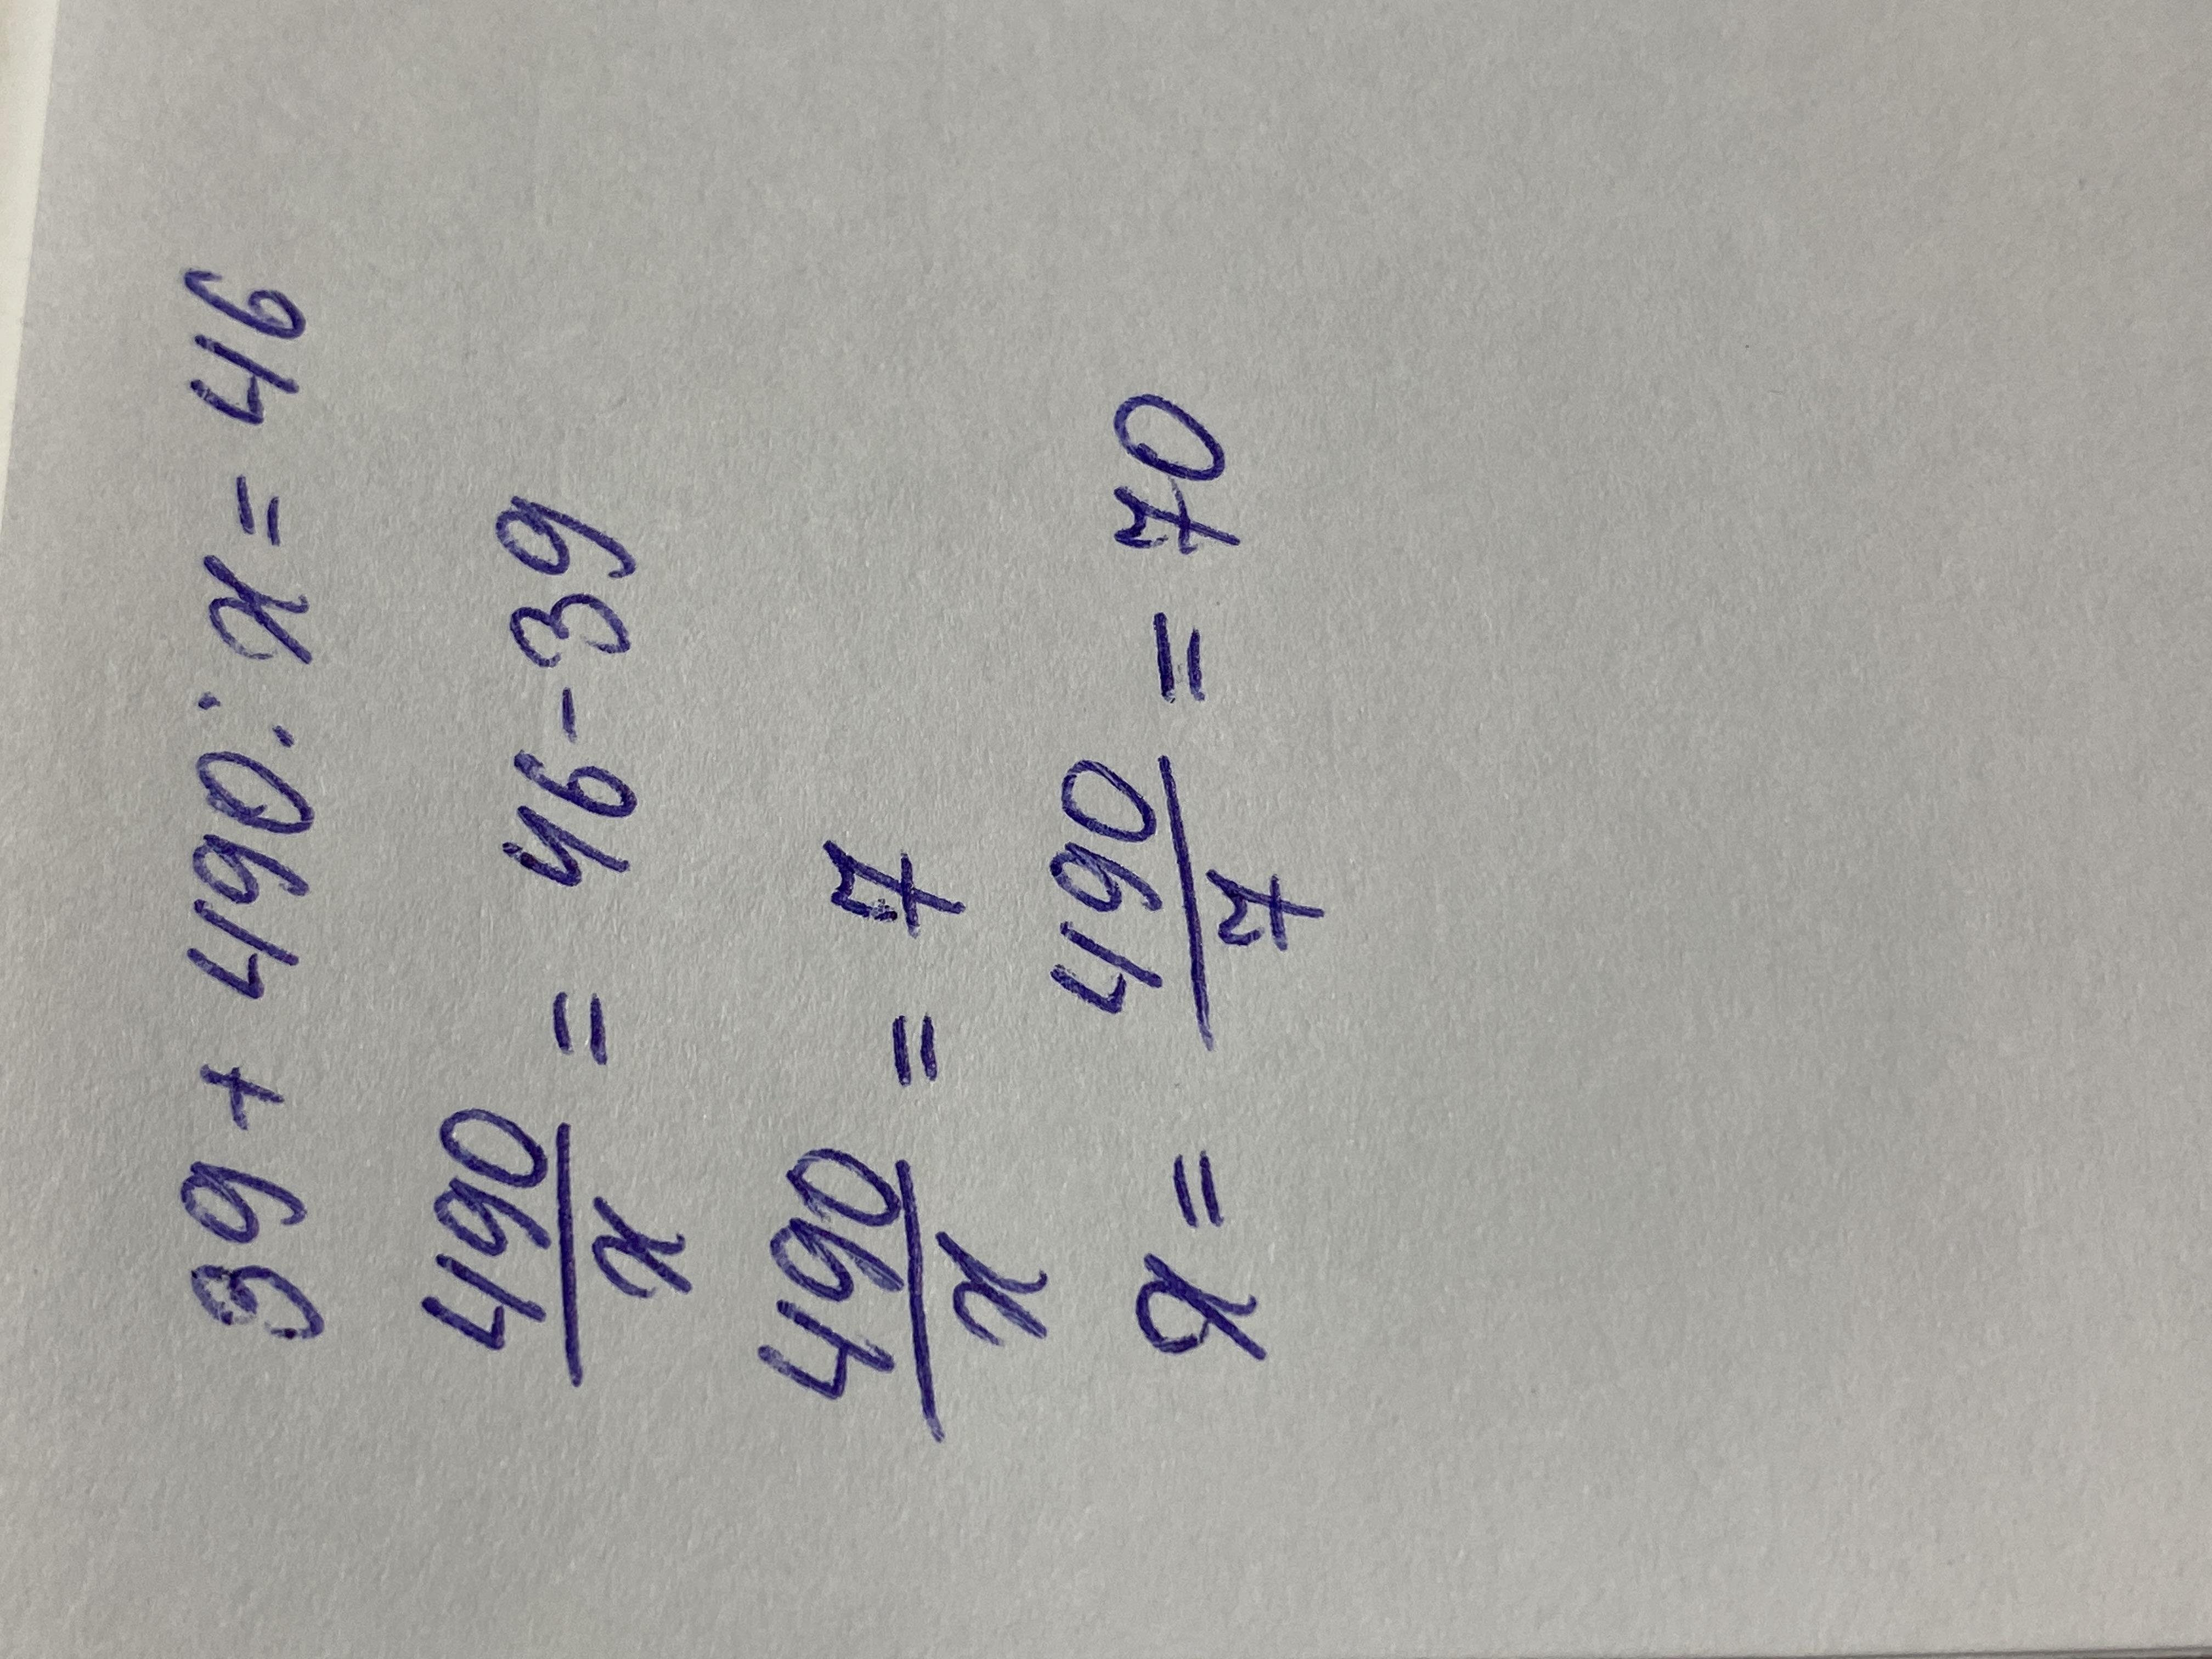 39 + 490 : x = 46
490/x = 46 - 39
490/x = 7
x = 490/7 = 70